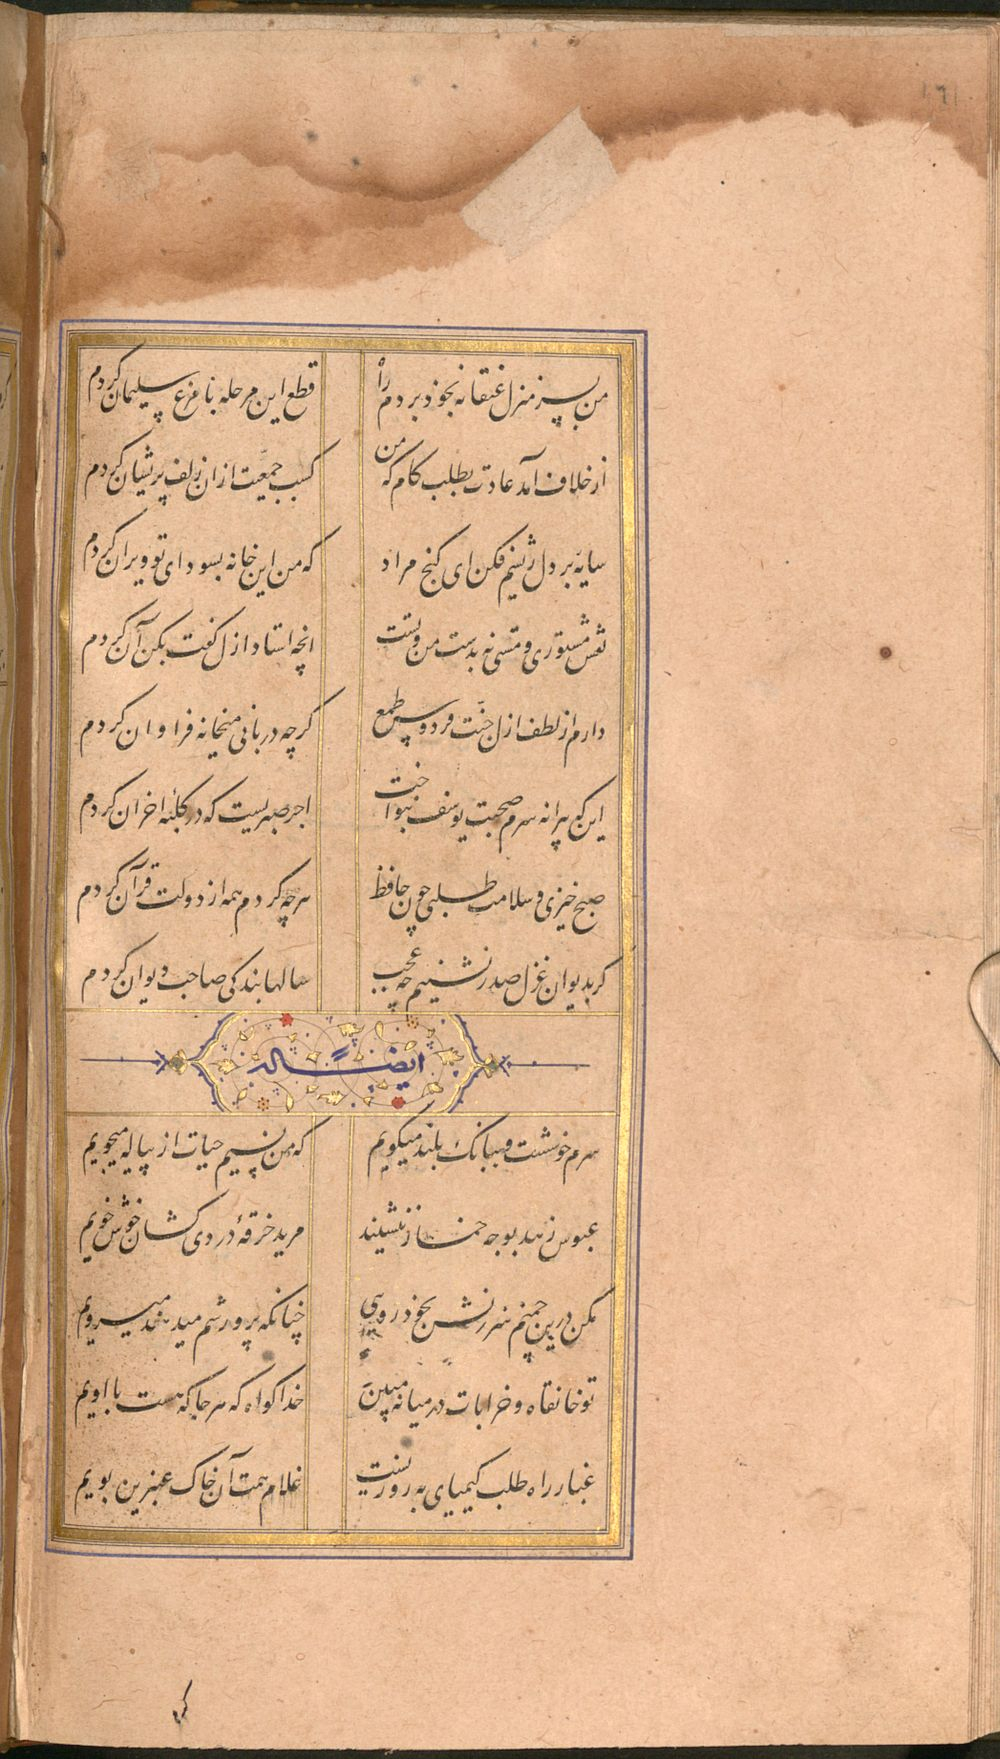 من بسر منزل عنقا نه بخود بردم راه قطع این مرحله با مرغ سلیمان کردم
از خلاف آمد عادت بطلب کام که من کسب جمعیت ازان زلف پریشان کردم
سایه بر دل ریشم فکن ای کنج مراد که من این خانه بسودای تو ویران کردم
نقش مستوری و مستی نه بدست من و تست انچه استاد ازل کفت بکن آن کردم
دارم از لطف ازل جنت فردوس طمع کرچه دربانی میخانه فراوان کردم
این که پیرانه سرم صحبت یوسف بنواخت اجر صبریست که در کلبئه احزان کردم
صبح خیزی و سلامت طلبی چون حافظ هرچه کردم همه از دولت قرآن کردم
کر بدیوان غزل صدر نشینم چه عجب سالها بندکی صاحب دیوان کردم
ایضاً له
سرم خوشست و ببانک بلند میکویم که من نسیم حیات از پیاله میجویم
عبوس زهد بوجه خمار ننشیند مرید خرقهٔ دردی کشان خوش خویم
مکن درین چمنم سرزنش بخود رویی چنانکه پرورشم میدهند میرویم
تو خانقاه و خرابات در میانه مبین خدا کواه که هر جا که هست با اویم
غبار راه طلب کیمیای به روزیست غلام همت آن خاک عنبرین بویم